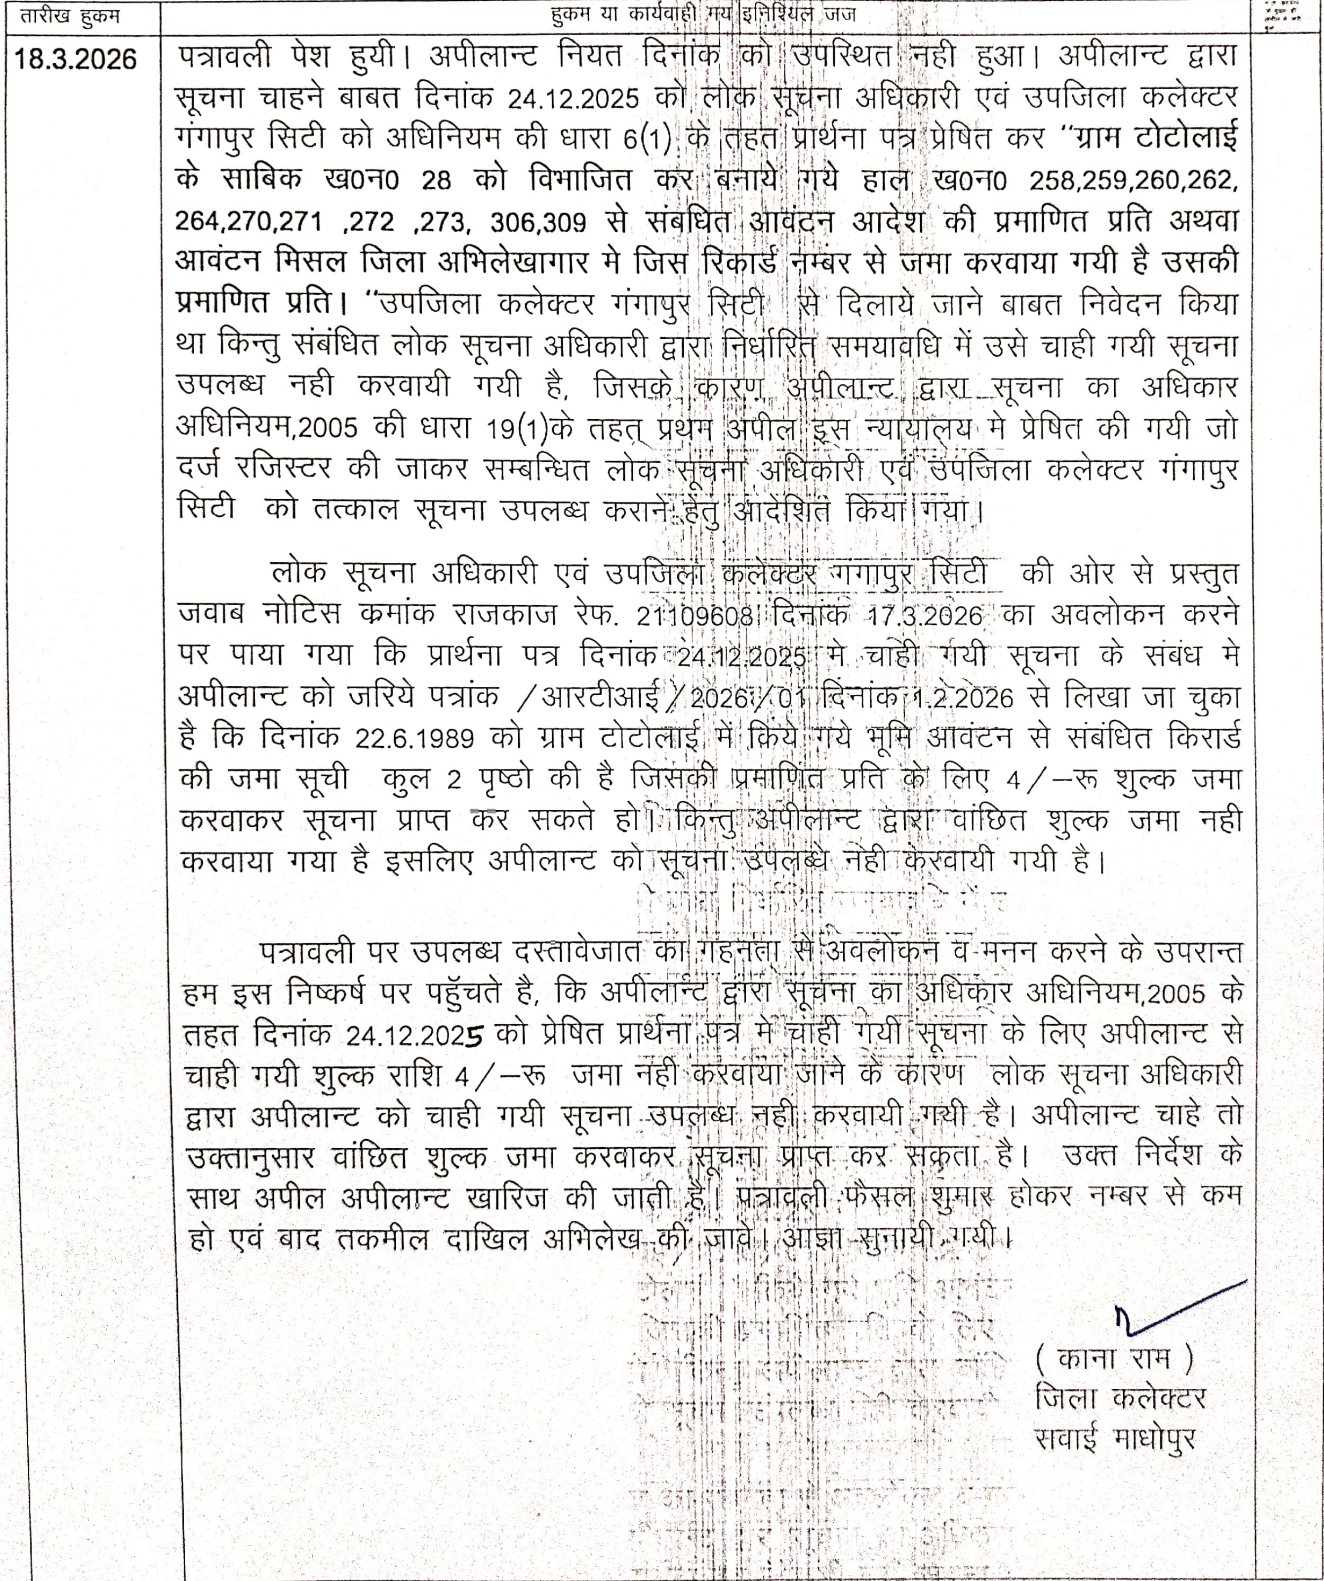 तारीख हुकम
हुकम या कार्यवाही मय इनिशियल जज
18.3.2026
पत्रावली पेश हुयी। अपीलान्ट नियत दिनांक को उपस्थित नही हुआ। अपीलान्ट द्वारा
सूचना चाहने बाबत दिनांक 24.12.2025 को लोक सूचना अधिकारी एवं उपजिला कलेक्टर
गंगापुर सिटी को अधिनियम की धारा 6(1) के तहत प्रार्थना पत्र प्रेषित कर "ग्राम टोटोलाई
के साबिक ख0न0 28 को विभाजित कर बनाये गये हाल ख0न0 258,259,260,262,
264,270,271 ,272 ,273, 306,309 से संबधित आवंटन आदेश की प्रमाणित प्रति अथवा
आवंटन मिसल जिला अभिलेखागार मे जिस रिकार्ड नम्बर से जमा करवाया गयी है उसकी
प्रमाणित प्रति। "उपजिला कलेक्टर गंगापुर सिटी से दिलाये जाने बाबत निवेदन किया
था किन्तु संबंधित लोक सूचना अधिकारी द्वारा निर्धारित समयावधि में उसे चाही गयी सूचना
उपलब्ध नही करवायी गयी है, जिसके कारण अपीलान्ट द्वारा सूचना का अधिकार
अधिनियम,2005 की धारा 19(1)के तहत् प्रथम अपील इस न्यायालय मे प्रेषित की गयी जो
दर्ज रजिस्टर की जाकर सम्बन्धित लोक सूचना अधिकारी एवं उपजिला कलेक्टर गंगापुर
सिटी को तत्काल सूचना उपलब्ध कराने हेतु आदेशित किया गया।
लोक सूचना अधिकारी एवं उपजिला कलेक्टर गगापुर सिटी की ओर से प्रस्तुत
जवाब नोटिस कमांक राजकाज रेफ. 21109608 दिनांक 17.3.2026 का अवलोकन करने
पर पाया गया कि प्रार्थना पत्र दिनांक 24.12.2025 मे चाही गयी सूचना के संबंध मे
अपीलान्ट को जरिये पत्रांक /आरटीआई/2026/01 दिनांक 1.2.2026 से लिखा जा चुका
है कि दिनांक 22.6.1989 को ग्राम टोटोलाई में किये गये भूमि आवंटन से संबंधित किरार्ड
की जमा सूची कुल 2 पृष्ठो की है जिसकी प्रमाणित प्रति के लिए 4/–रू शुल्क जमा
करवाकर सूचना प्राप्त कर सकते हो। किन्तु अपीलान्ट द्वारा वांछित शुल्क जमा नही
करवाया गया है इसलिए अपीलान्ट को सूचना उपलब्ध नही करवायी गयी है।
पत्रावली पर उपलब्ध दस्तावेजात का गहनता से अवलोकन व मनन करने के उपरान्त
हम इस निष्कर्ष पर पहुॅचते है, कि अपीलान्ट द्वारा सूचना का अधिकार अधिनियम,2005 के
तहत दिनांक 24.12.2025 को प्रेषित प्रार्थना पत्र मे चाही गयी सूचना के लिए अपीलान्ट से
चाही गयी शुल्क राशि 4/–रू जमा नही करवाया जाने के कारण लोक सूचना अधिकारी
द्वारा अपीलान्ट को चाही गयी सूचना उपलब्ध नही करवायी गयी है। अपीलान्ट चाहे तो
उक्तानुसार वांछित शुल्क जमा करवाकर सूचना प्राप्त कर सकता है। उक्त निर्देश के
साथ अपील अपीलान्ट खारिज की जाती है। पत्रावली फैसल शुमार होकर नम्बर से कम
हो एवं बाद तकमील दाखिल अभिलेख की जावे। आज्ञा सुनायी गयी।
( काना राम )
जिला कलेक्टर
सवाई माधोपुर